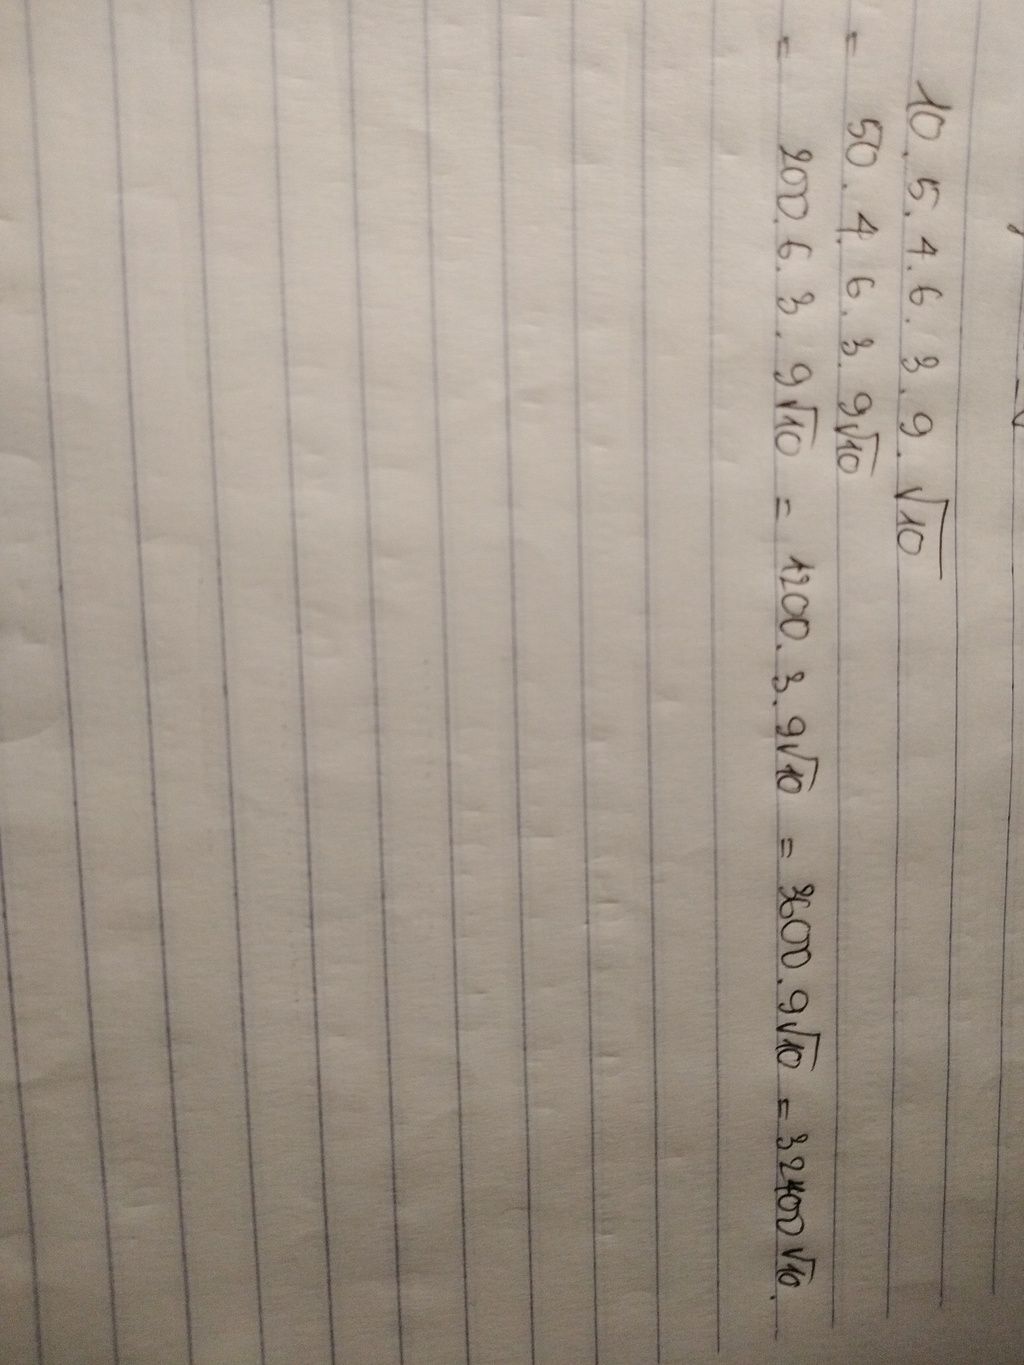 10 . 5 . 4 . 6 . 3 . 9 . √10
= 50 . 4 . 6 . 3 . 9√10
= 200 . 6 . 3 . 9√10 = 1200 . 3 . 9√10 = 3600 . 9√10 = 32400√10.